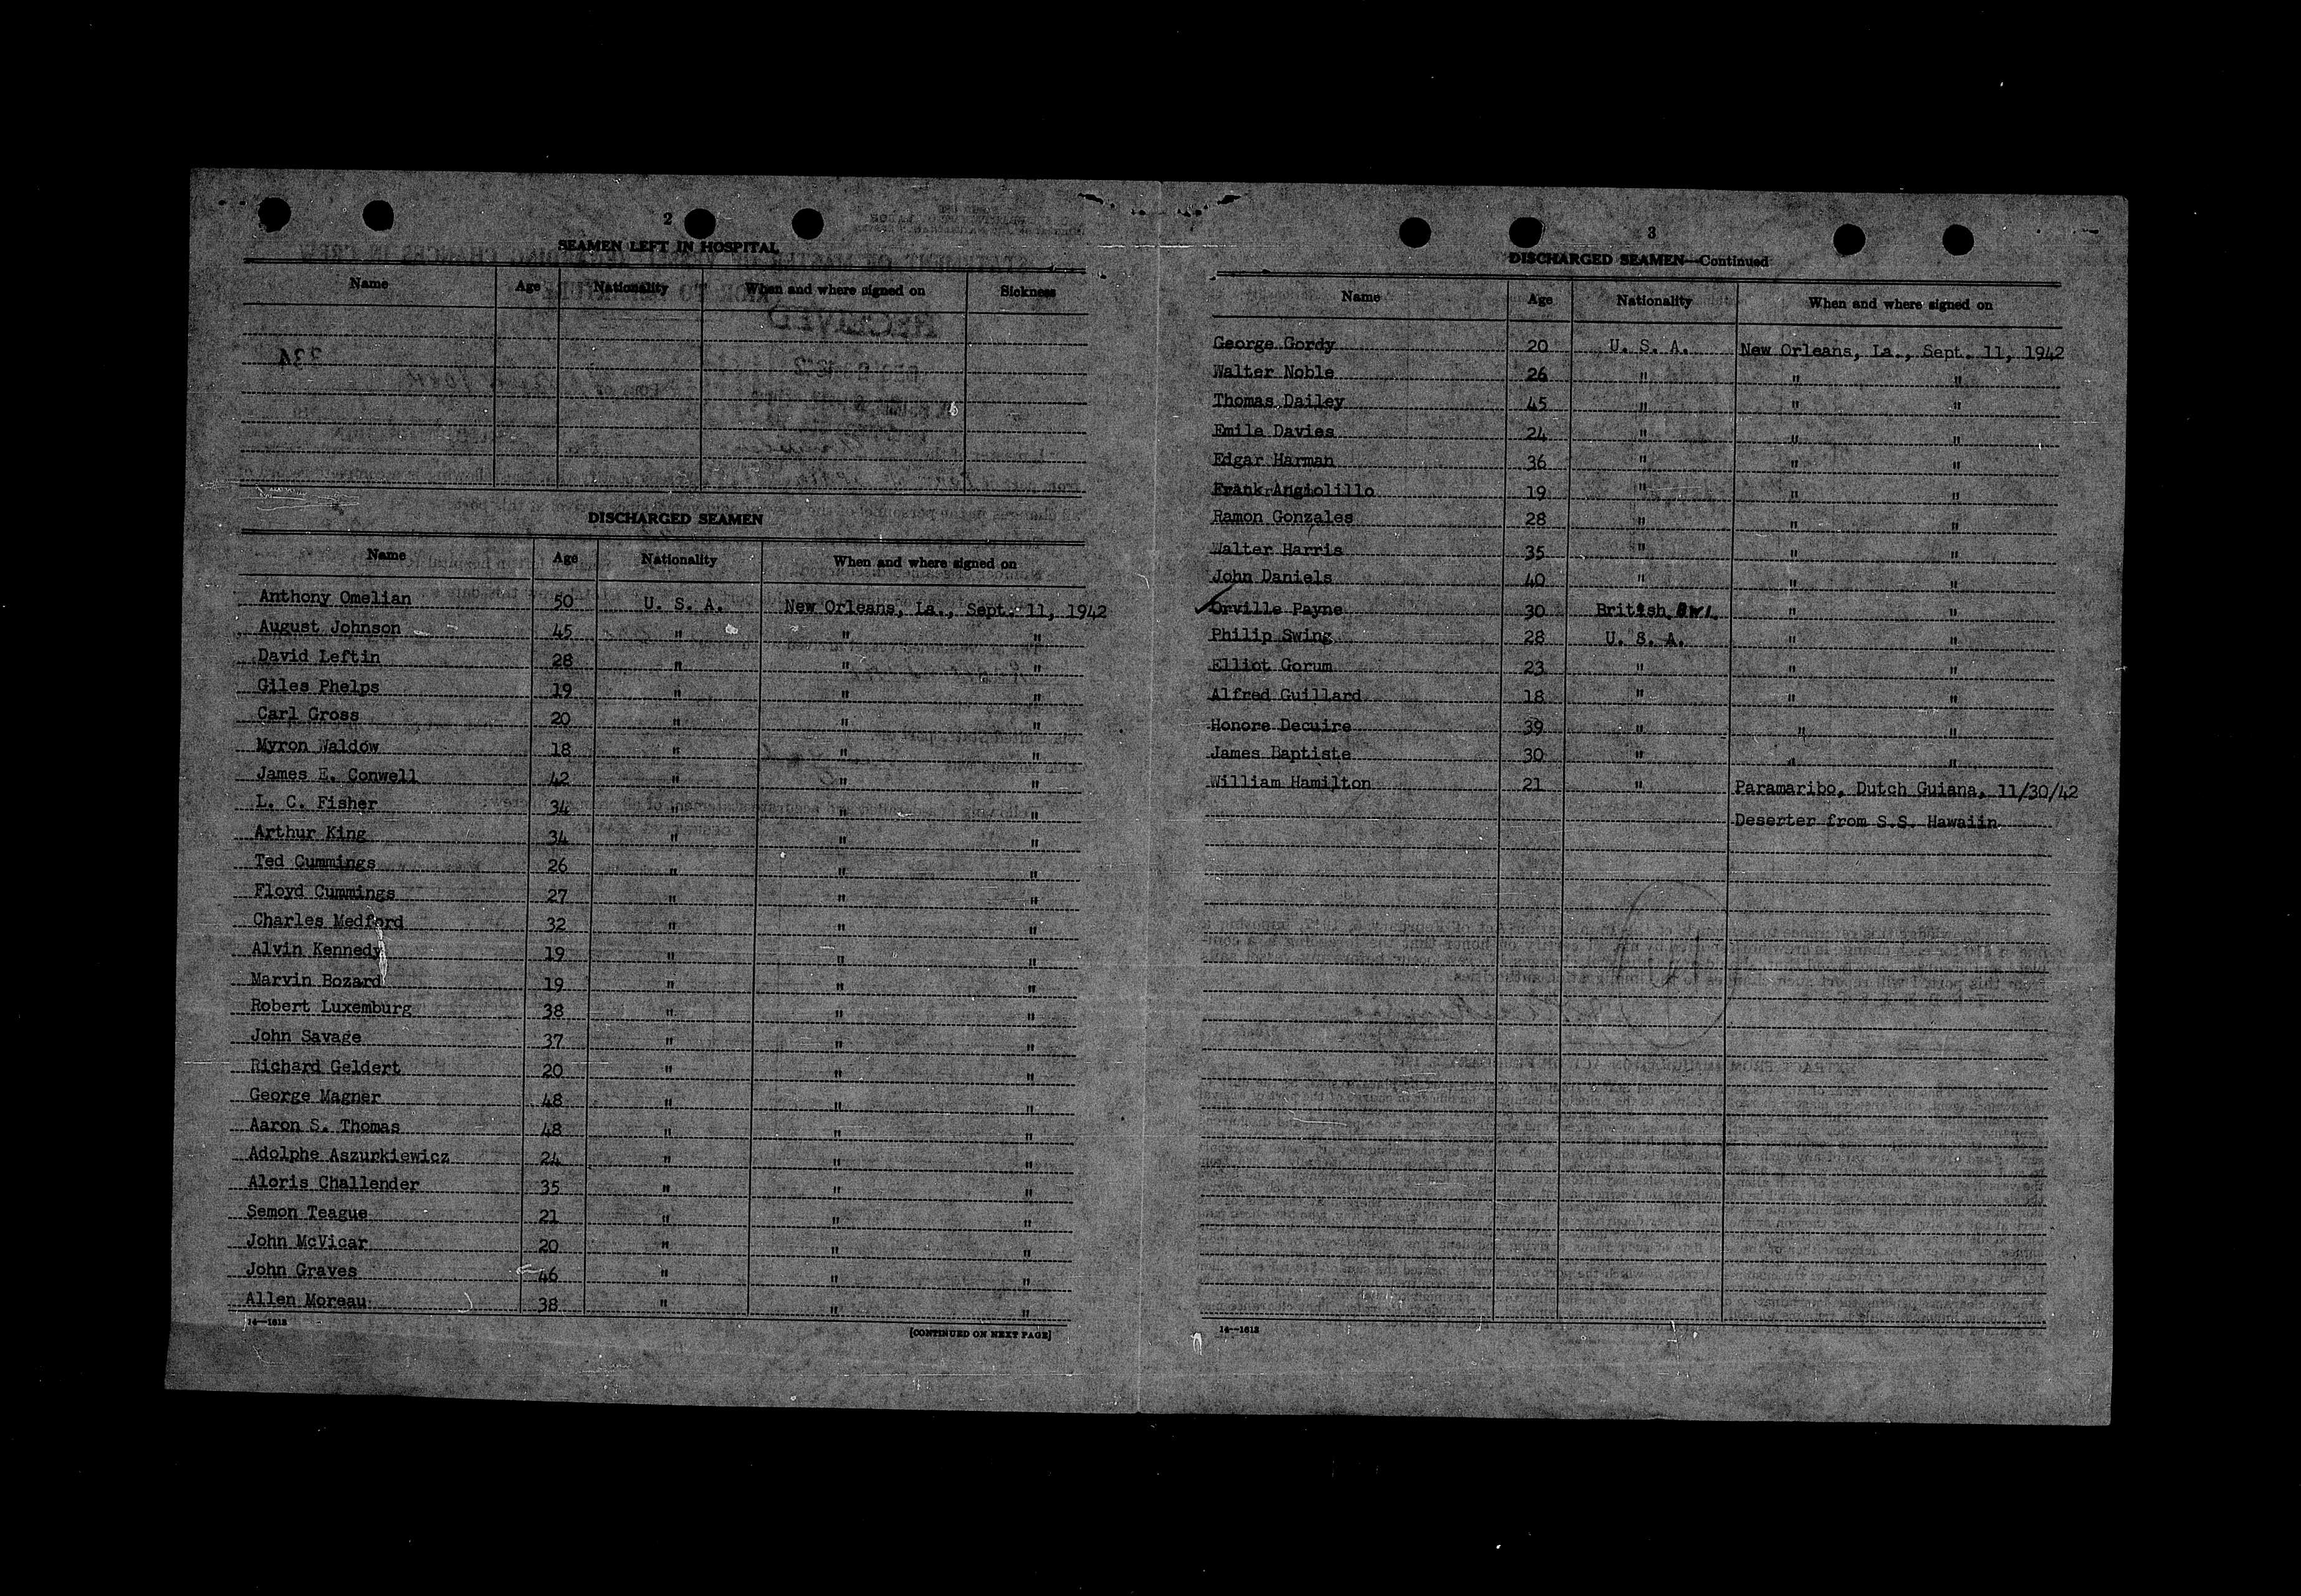 2
SEAMEN LEFT IN HOSPITAL
Name Age Nationality When and where signed on Sickness
DISCHARGED SEAMEN
Name Age Nationality When and where signed on
Anthony Omelian 50 U. S. A. New Orleans, La., Sept. 11, 1942
August Johnson 45 " " "
David Leftin 28 " " "
Giles Phelps 19 " " "
Carl Gross 20 " " "
Myron Waldow 18 " " "
James E. Conwell 42 " " "
L. C. Fisher 34 " " "
Arthur King 34 " " "
Ted Cummings 26 " " "
Floyd Cummings 27 " " "
Charles Medford 32 " " "
Alvin Kennedy 19 " " "
Marvin Bozard 19 " " "
Robert Luxemburg 38 " " "
John Savage 37 " " "
Richard Geldert 20 " " "
George Magner 48 " " "
Aaron S. Thomas 48 " " "
Adolphe Aszurkiewicz 24 " " "
Aloris Challender 35 " " "
Semon Teague 21 " " "
John McVicar 20 " " "
John Graves 46 " " "
Allen Moreau 38 " " "
14—1612
[CONTINUED ON NEXT PAGE]
3
DISCHARGED SEAMEN—Continued
Name Age Nationality When and where signed on
George Gordy 20 U. S. A. New Orleans, La., Sept. 11, 1942
Walter Noble 26 " " "
Thomas Dailey 45 " " "
Emile Davies 24 " " "
Edgar Harman 36 " " "
Frank Angiolillo 19 " " "
Ramon Gonzales 28 " " "
Walter Harris 35 " " "
John Daniels 40 " " "
Orville Payne 30 British " "
Philip Swing 28 U. S. A. " "
Elliot Gorum 23 " " "
Alfred Guillard 18 " " "
Honore Decuire 39 " " "
James Baptiste 30 " " "
William Hamilton 21 " Paramaribo, Dutch Guiana, 11/30/42
Deserter from S.S. Hawaiin
14—1612